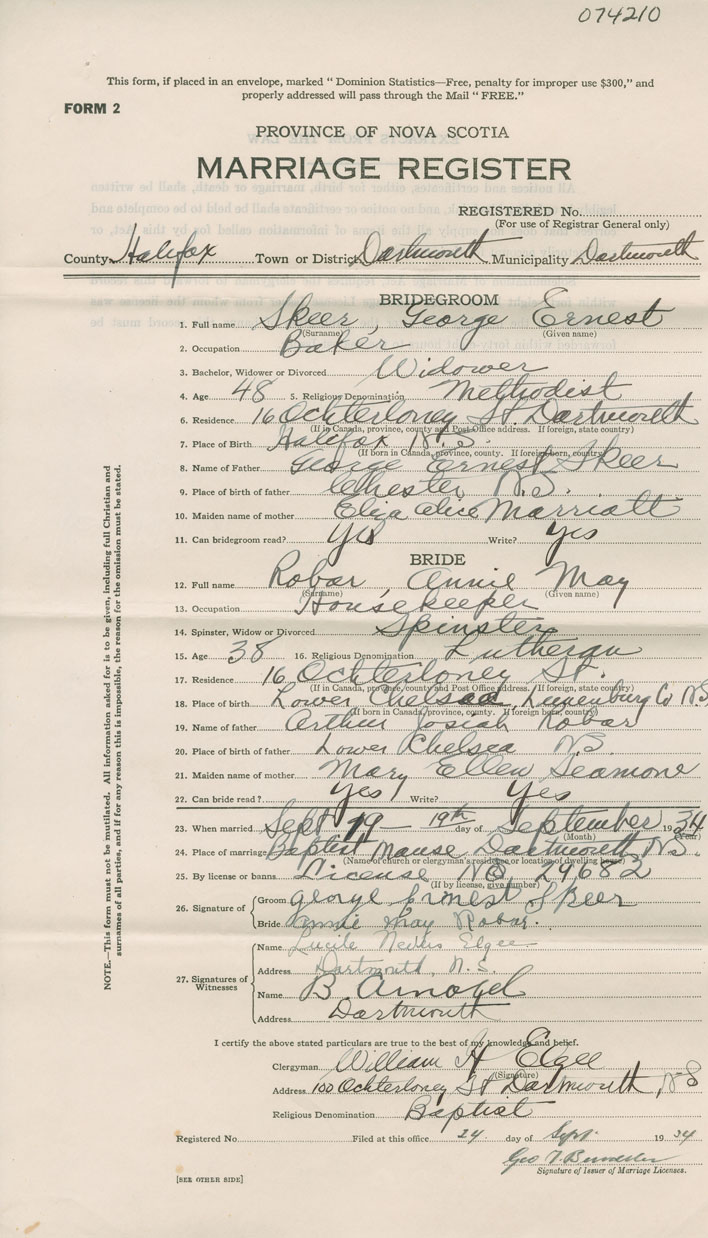 074210
This form, if placed in an envelope, marked “ Dominion Statistics—Free, penalty for improper use $300,” and
properly addressed will pass through the Mail “ FREE.”
FORM 2
PROVINCE OF NOVA SCOTIA
MARRIAGE REGISTER
REGISTERED No.
(For use of Registrar General only)
County Halifax Town or District Dartmouth Municipality Dartmouth
BRIDEGROOM
1. Full name Skeer, George Ernest
(Surname) (Given name)
2. Occupation Baker
3. Bachelor, Widower or Divorced Widower
4. Age 48 5. Religious Denomination Methodist
6. Residence 16 Ochterloney St. Dartmouth
(If in Canada, province, county and Post Office address. If foreign, state country)
7. Place of Birth Halifax N.S.
(If born in Canada, province, county. If foreign born, country)
8. Name of Father George Ernest Skeer
9. Place of birth of father Chester N.S.
10. Maiden name of mother Eliza Alice Marriatt
11. Can bridegroom read? Yes Write? Yes
BRIDE
12. Full name Robar, Annie May
(Surname) (Given name)
13. Occupation Housekeeper
14. Spinster, Widow or Divorced Spinster
15. Age 38 16. Religious Denomination Lutheran
17. Residence 16 Ochterloney St.
(If in Canada, province, county and Post Office address. If foreign, state country)
18. Place of birth Lower Chelsea Lunenburg Co N.S
(If born in Canada, province, county. If foreign born, country)
19. Name of father Arthur Josiah Robar
20. Place of birth of father Lower Chelsea N.S.
21. Maiden name of mother Mary Ellen Seamone
22. Can bride read? Yes Write? Yes
23. When married Sept 19 — 19th day of September 1934
(Month) (Year)
24. Place of marriage Baptist Manse Dartmouth, N.S.
(Name of church or clergyman's residence or location of dwelling house)
25. By license or banns License No. 29682
(If by license, give number)
26. Signature of
Groom George Ernest Skeer
Bride Annie May Robar.
27. Signatures of Witnesses
Name Lucile Elgee
Address Dartmouth, N.S.
Name B.
Address Dartmouth
I certify the above stated particulars are true to the best of my knowledge and belief.
Clergyman William H Elgee
(Signature)
Address 100 Ochterloney St Dartmouth, N S
Religious Denomination Baptist
Registered No. Filed at this office 24 day of Sept. 1934
Geo
Signature of Issuer of Marriage Licenses.
[SEE OTHER SIDE]
NOTE.—This form must not be mutilated. All information asked for is to be given, including full Christian and
surnames of all parties, and if for any reason this is impossible, the reason for the omission must be stated.